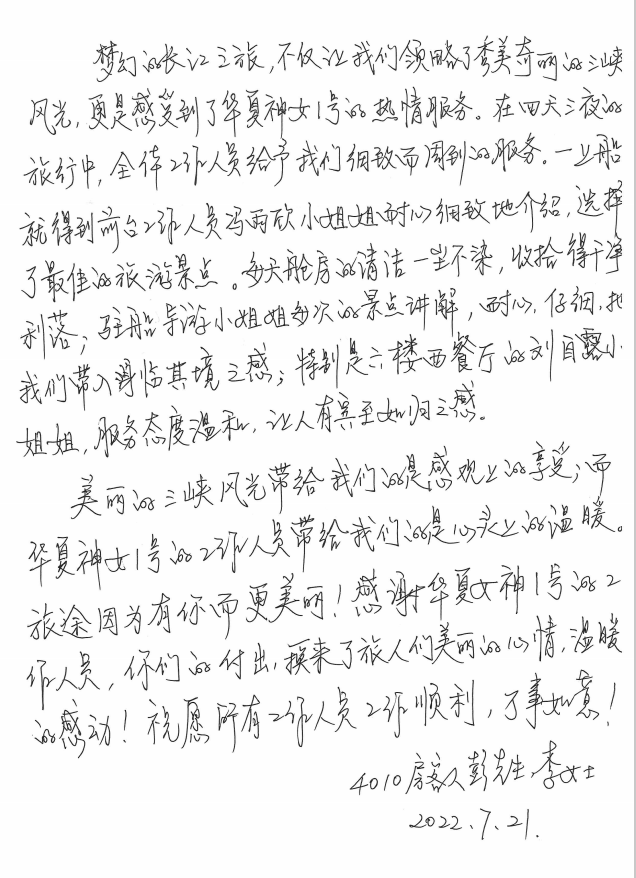 梦幻的长江之旅，不仅让我们领略了秀美奇丽的三峡
风光，更是感受到了华夏神女1号的热情服务。在四天三夜的
旅行中，全体工作人员给予我们细致而周到的服务。一上船
就得到前台工作人员冯雨欣小姐姐耐心细致地介绍，选择
了最佳的旅游景点。每天舱房的清洁一尘不染，收拾得干净
利落；驻船导游小姐姐每次的景点讲解，耐心，仔细，把
我们带入身临其境之感；特别是六楼西餐厅的刘自露小
姐姐，服务态度温和，让人有宾至如归之感。
美丽的三峡风光带给我们的是感观上的享受；而
华夏神女1号的工作人员带给我们的是心灵上的温暖。
旅途因为有你而更美丽！感谢华夏女神1号的工
作人员，你们的付出，换来了旅人们美丽的心情，温暖
的感动！祝愿所有工作人员工作顺利，万事如意！
4010房客人彭先生、李女士
2022.7.21.